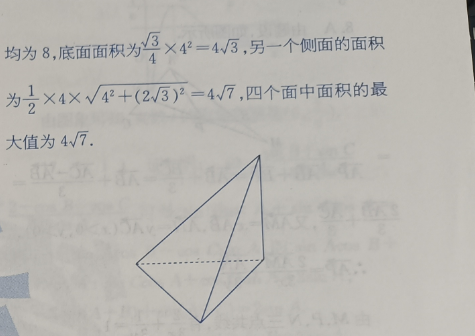 均为 8,底面面积为$\frac{\sqrt{3}}{4}×4^2=4\sqrt{3}$,另一个侧面的面积
为$\frac{1}{2}×4×\sqrt{4^2+(2\sqrt{3})^2}=4\sqrt{7}$,四个面中面积的最
大值为 $4\sqrt{7}$.